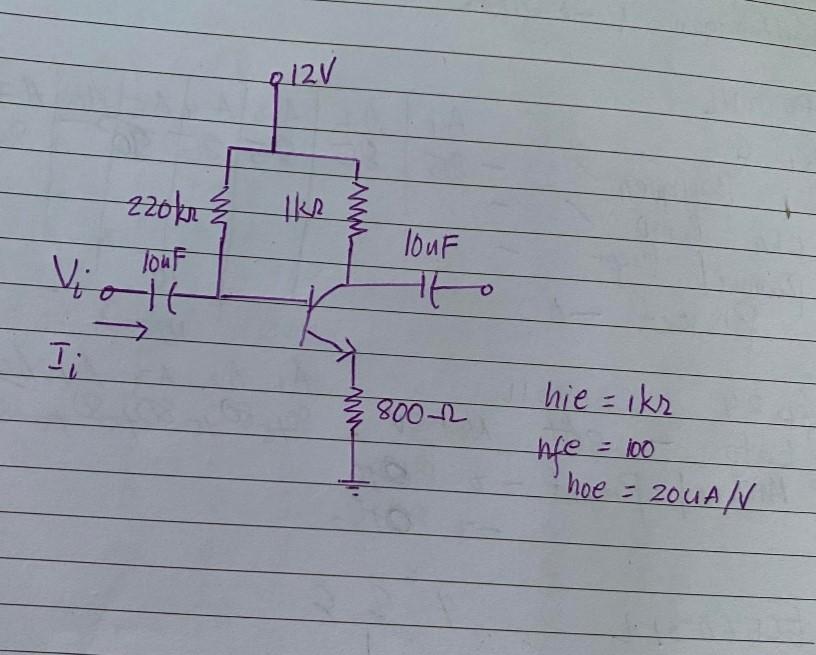 12V
220kΩ
1kΩ
10uF
10uF
Vi
Ii
800Ω
hie = 1kΩ
hfe = 100
hoe = 20uA/V